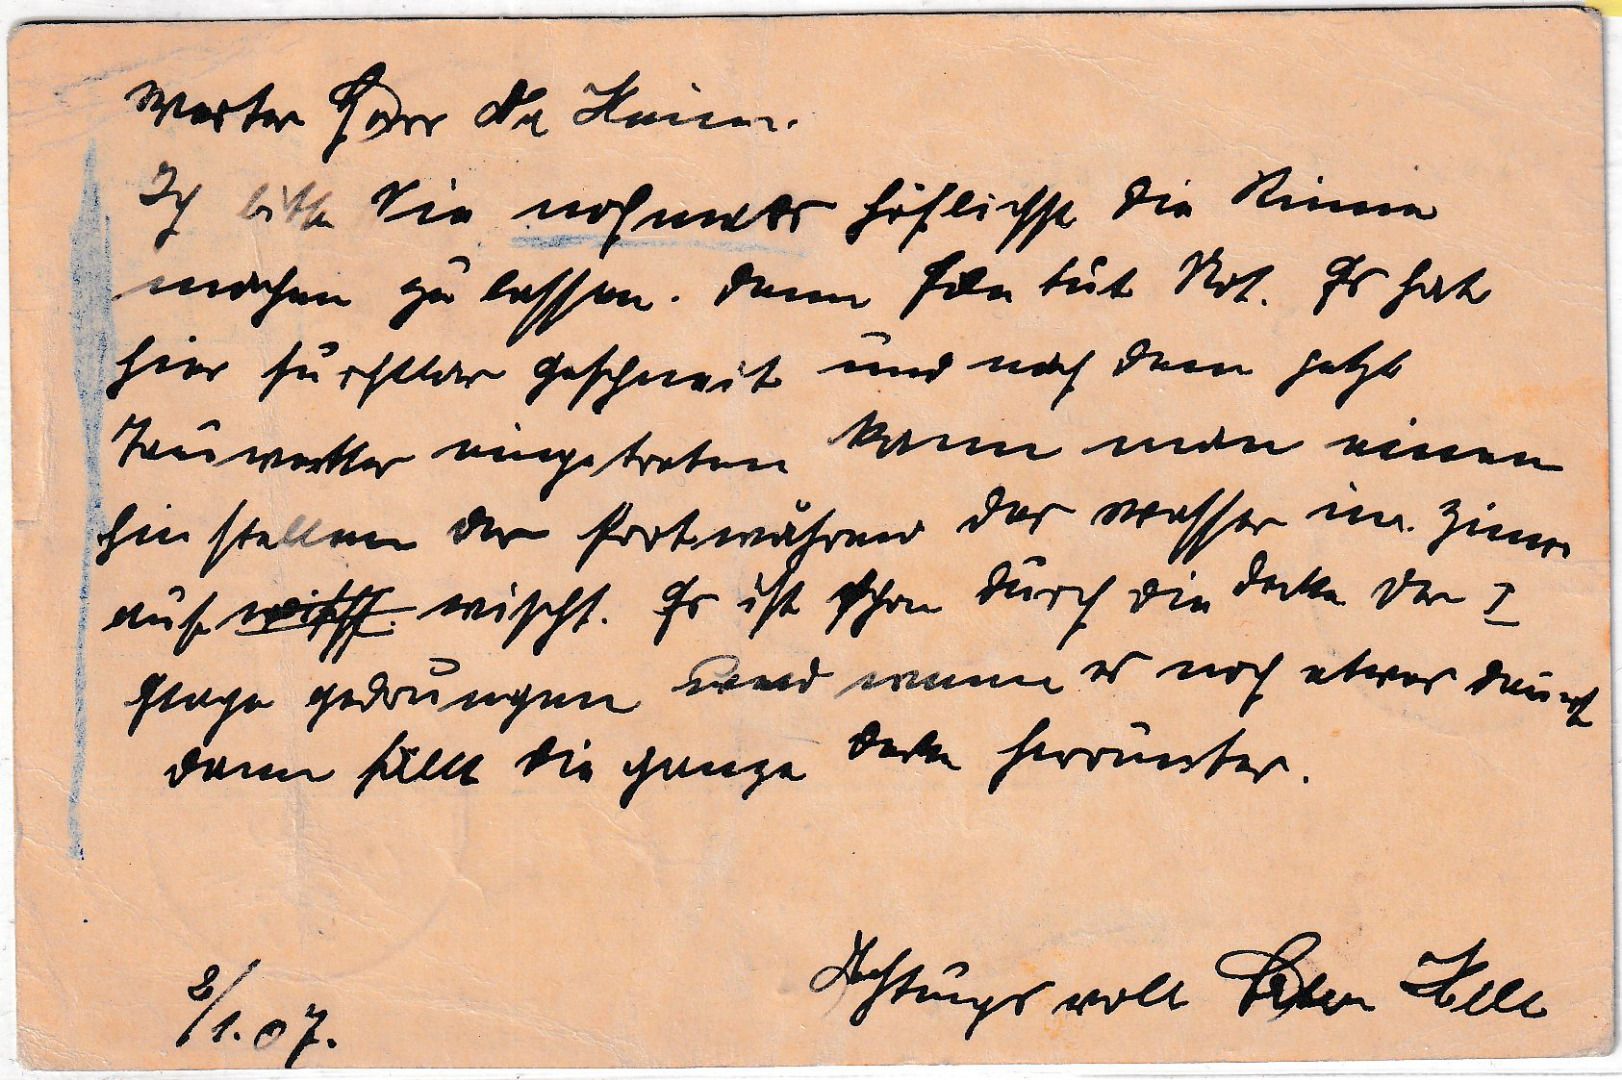 Werter Herr Dr
Ich bitte Sie nochmals höflichst die Rinne
machen zu lassen. denn tut Not. Es hat
hier furchtbar geschneit und nach dem jetzt
Tauwetter eingetreten kann man einen
hin stellen der fortwährend das Wasser im Zimmer
auf wischt. Es ist schon durch die decke der I
Etage gedrungen und wenn es noch etwas dauert
dann fällt die ganze decke herrunter.
Achtungs voll
2/1.07.